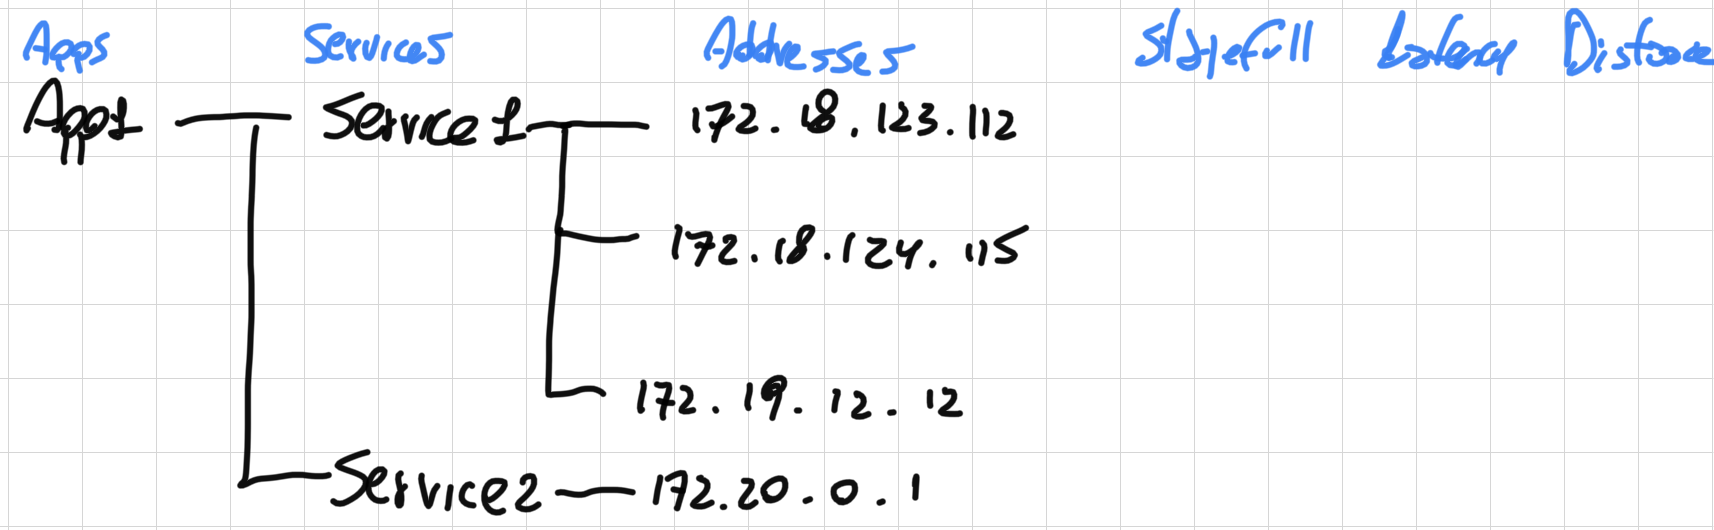 Apps Services Addresses Statefull Latency Distance
App1 Service1 172.18.123.112
172.18.124.115
172.19.12.12
Service2 172.20.0.1